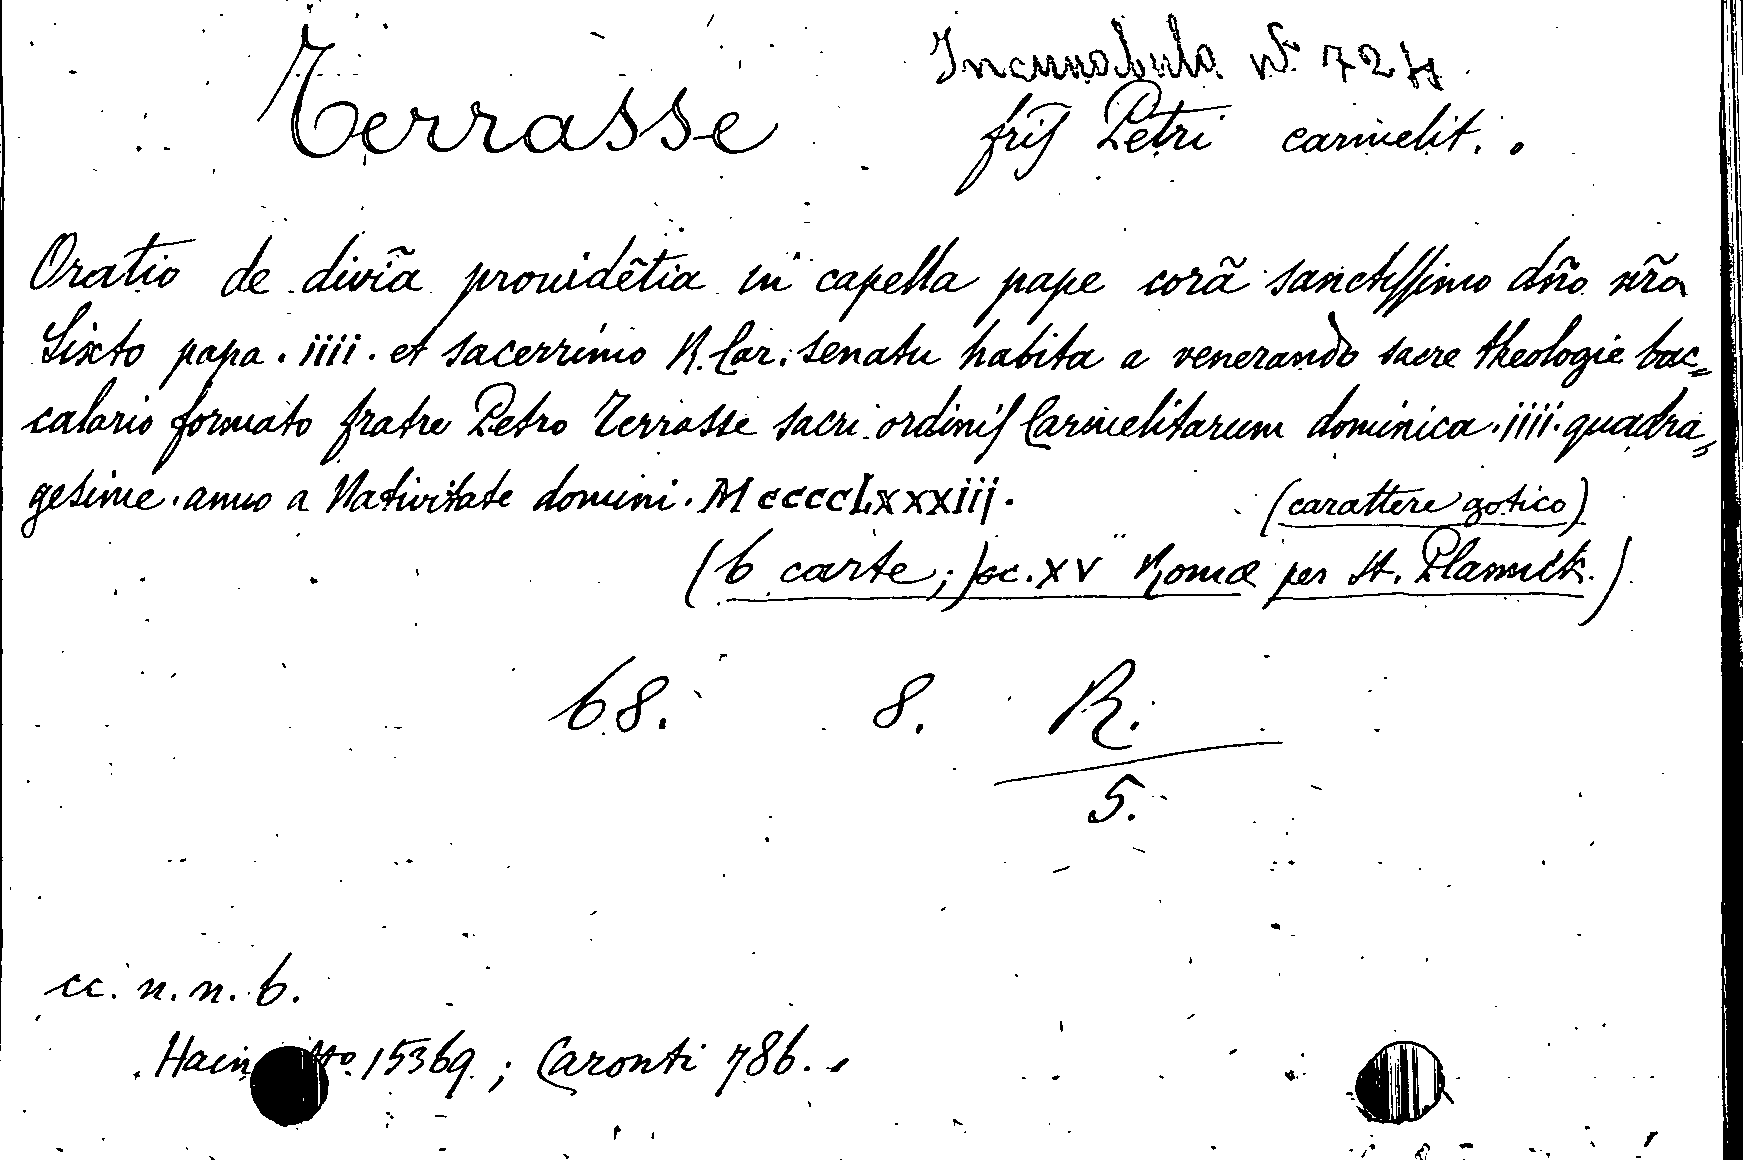 Incunabula No. 724
Terrasse fris Petri carmelit..
Oratio de divīa prouidẽtia in capella pape corã sanctissimo dño nr̃o
Sixto papa . iiii . et sacerrimo R. Car. senatu habita a venerando sacre theologie bac-
calario formato fratre Petro Terrasse sacri ordinis Carmelitarum dominica . iiii . quadra-
gesime . anno a Nativitate domini . MccccLxxxiij .
(carattere gotico)
(6 carte; sec. XV Romæ per St. Plannck.)
68. 8. R.
5.
cc. n. n. 6.
Hain 15369 ; Caronti 786.